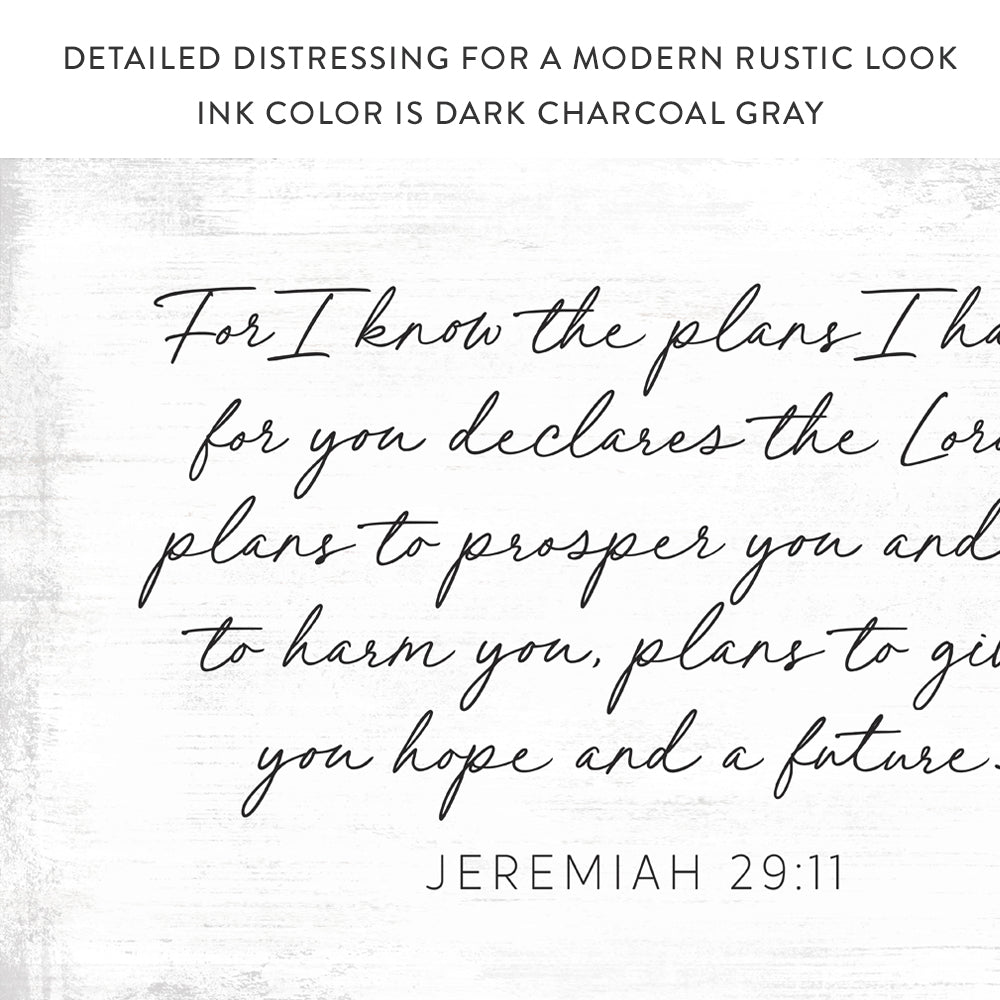 DETAILED DISTRESSING FOR A MODERN RUSTIC LOOK
INK COLOR IS DARK CHARCOAL GRAY
For I know the plans I ha
for you declares the Lord
plans to prosper you and
to harm you, plans to giv
you hope and a future.
JEREMIAH 29:11